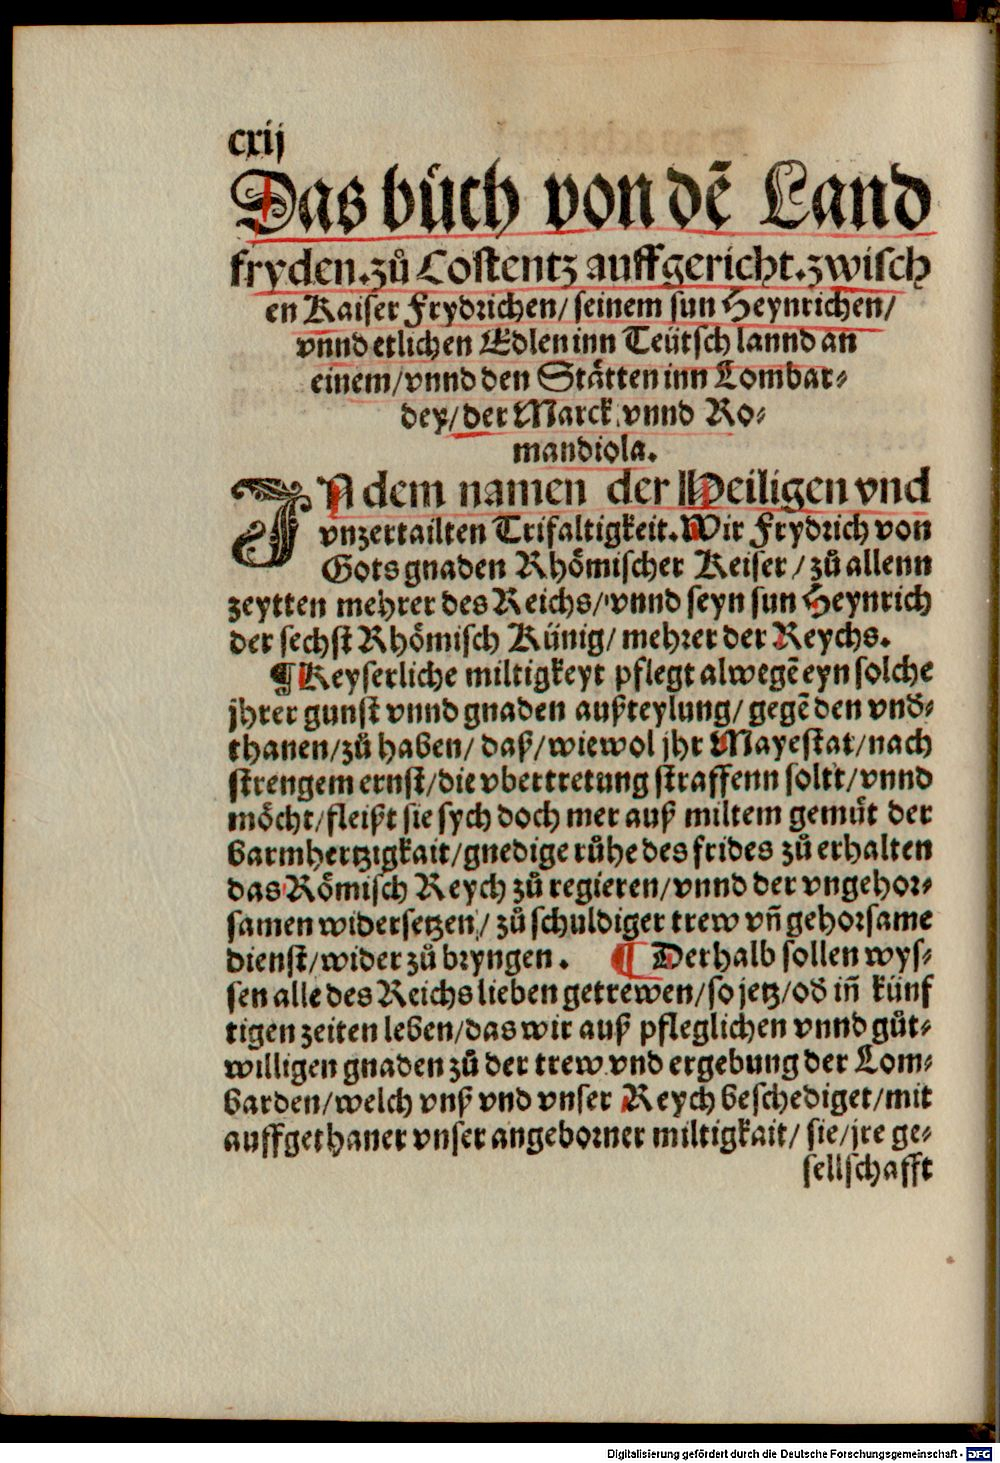 cxij
Das bůch von dē Land
fryden.zů Costentz auffgericht.zwisch
en Kaiser Frydrichen/ seinem sun Heynrichen/
vnnd etlichen Edlen inn Teütsch lannd an
einem/vnnd den Stätten inn Lombar⸗
dey/der Marck vnnd Ro⸗
mandiola.
IN dem namen der Heiligen vnd
vnzertailten Trifaltigkeit. Wir Frydrich von
Gots gnaden Rhömischer Keiser / zů allenn
zeytten mehrer des Reichs/ vnnd seyn sun Heynrich
der sechst Rhömisch Künig/ mehrer der Reychs.
¶ Keyserliche miltigkeyt pflegt alwegē eyn solche
jhrer gunst vnnd gnaden außteylung/ gegē den vnd⸗
thanen/zů haben/ daß/wiewol jhr Mayestat/nach
strengem ernst/die vbertretung straffenn soltt/vnnd
möcht/fleißt sie sych doch mer auß miltem gemüt der
barmhertzigkait/gnedige růhe des frides zů erhalten
das Römisch Reych zů regieren/vnnd der vngehor⸗
samen widersetzen / zů schuldiger trew vn̄ gehorsame
dienst/wider zů bryngen. ¶ Derhalb sollen wys⸗
sen alle des Reichs lieben getrewen/so jetz/od in̄ künf
tigen zeiten leben/das wir auß pfleglichen vnnd gůt⸗
willigen gnaden zů der trew vnd ergebung der Lom⸗
barden/welch vnß vnd vnser Reych beschediget/mit
auffgethaner vnser angeborner miltigkait/ sie/jre ge⸗
sellschafft
Digitalisierung gefördert durch die Deutsche Forschungsgemeinschaft - DFG